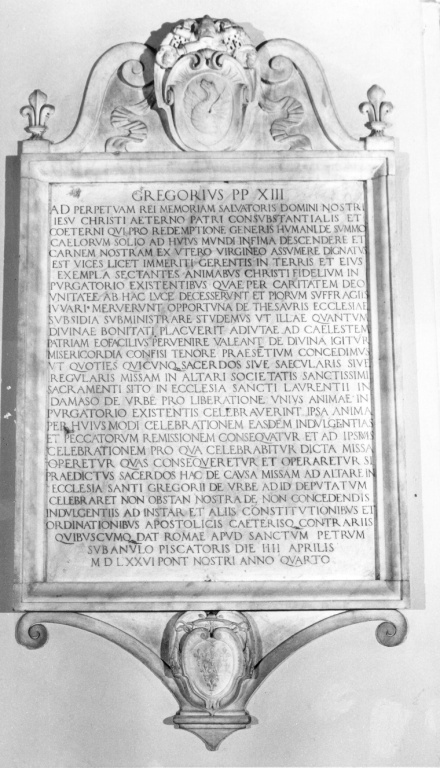 GREGORIVS PP XIII
AD PERPETVAM REI MEMORIAM SALVATORIS DOMINI NOSTRI
IESV CHRISTI AETERNO PATRI CONSVBSTANTIALIS ET
COETERNI QVI PRO REDEMPTIONE GENERIS HVMANI DE SVMMO
CAELORVM SOLIO AD HVIVS MVNDI INFIMA DESCENDERE ET
CARNEM NOSTRAM EX VTERO VIRGINEO ASSVMERE DIGNATVS
EST VICES LICET IMMERITI GERENTIS IN TERRIS ET EIVS
EXEMPLA SECTANTES ANIMABVS CHRISTI FIDELIVM IN
PVRGATORIO EXISTENTIBVS QVAE PER CARITATEM DEO
VNITAE EE AB HAC LVCE DECESSERVNT ET PIORVM SVFFRAGIIS
IVVARI MERVERVNT OPPORTVNA DE THESAVRIS ECCLESIAE
SVBSIDIA SVBMINISTRARE STVDEMVS VT ILLAE QVANTVM
DIVINAE BONITATI PLACVERIT ADIVTAE AD CAELESTEM
PATRIAM EO FACILIVS PERVENIRE VALEANT DE DIVINA IGITVR
MISERICORDIA CONFISI TENORE PRAESETIVM CONCEDIMVS
VT QVOTIES QVICVNQ SACERDOS SIVE SAECVLARIS SIVE
REGVLARIS MISSAM IN ALTARI SOCIETATIS SANCTISSIMI
SACRAMENTI SITO IN ECCLESIA SANCTI LAVRENTII IN
DAMASO DE VRBE PRO LIBERATIONE VNIVS ANIMAE IN
PVRGATORIO EXISTENTIS CELEBRAVERINT IPSA ANIMA
PER HVIVS MODI CELEBRATIONEM EASDEM INDVLGENTIAS
ET PECCATORVM REMISSIONEM CONSEQVATVR ET AD IPSIVS
CELEBRATIONEM PRO QVA CELEBRABITVR DICTA MISSA
OPERETVR QVAS CONSEQVERETVR ET OPERARETVR SI
PRAEDICTVS SACERDOS HAC DE CAVSA MISSAM AD ALTARE IN
ECCLESIA SANTI GREGORII DE VRBE AD ID DEPVTATVM
CELEBRARET NON OBSTAN NOSTRA DE NON CONCEDENDIS
INDVLGENTIIS AD INSTAR ET ALIIS CONSTITVTIONIBVS ET
ORDINATIONIBVS APOSTOLICIS CAETERISQ CONTRARIIS
QVIBVSCVMQ DAT ROMAE APVD SANCTVM PETRVM
SVB ANVLO PISCATORIS DIE IIII APRILIS
M D LXXVI PONT NOSTRI ANNO QVARTO